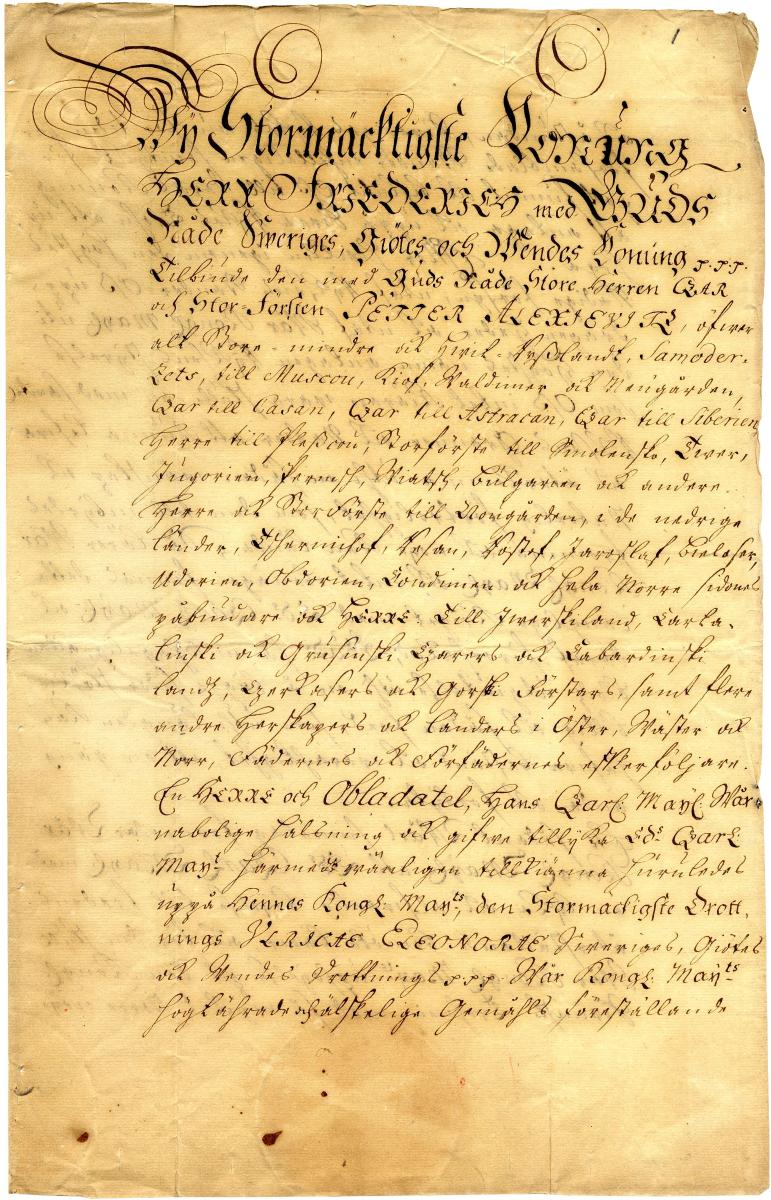 1
Wy Stormäcktigste Konung
HERR FRIEDERICH med GUDS
Nåde Sweriges, Giötes och Wendes Konung p.p.p.
Tilbiude den med Guds Nåde Store Herren CZAR
och Stor-Försten PETTER ALEXIEVITZ, öfwer
alt Store-mindre och Hwit-Ryßlandt, Samoder-
Zets, till Muscou, Kiof, Waldimer och Neugården,
Czar till Casan, Czar till Astracan, Czar till Siberien,
Herre till Pleßcou, Storförste till Smolensko, Twer,
Jugorien, Permsh, Wiatsh, Bulgarien och andere.
Herre och Storförste till Novgården, i de nedrige
Länder, Tshernihof, Resan, Rostof, Jaroslaf, Bieloser,
Udorien, Obdorien, Condinien och hela Norre sidones
påbiudare och HERRE: Till Jwerskiland, Carta-
linski och Grusinski Czarers och Cabardinski
landz, Czerkasers och Gorski Förstars, samt flere
andre Herskapers och Länders i Öster, Wäster och
Norr, Fädernes och Förfädernes effterföljare.
En HERRE och Obladatel, Hans Czarl: Mayt: Wår
nabolige hälsning och gifwe tillyka Eds Czarl:
Mayt: härmedh wänligen tillkiänna huruledes
uppå Hennes Kongl: Mayts, den Stormächtigste Drott-
nings ULRICAE ELEONORAE Sweriges, Giötes
och Wendes Drottnings p.p.p. Wår Kongl: Mayts
högtährade och älskelige Gemåhls föreställande